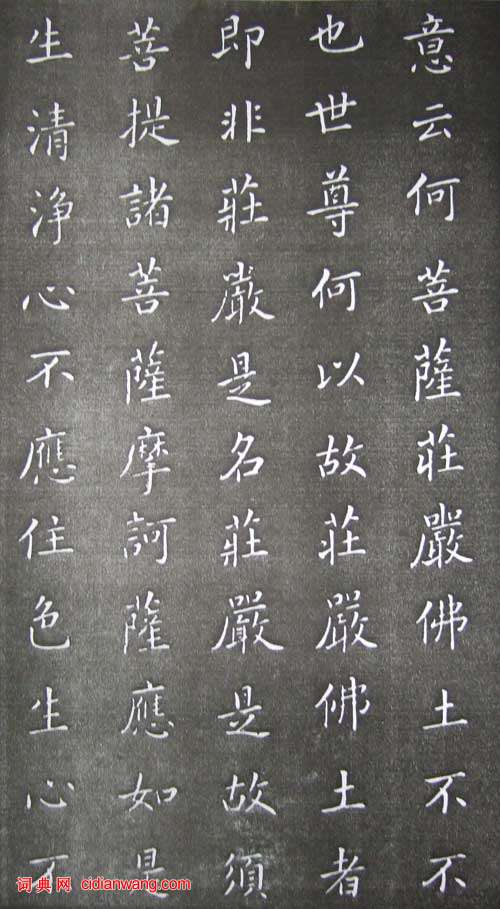 意云何菩薩莊嚴佛土不不
也世尊何以故莊嚴佛土者
即非莊嚴是名莊嚴是故須
菩提諸菩薩摩訶薩應如是
生清淨心不應住色生心不
词典网 cidianwang.com